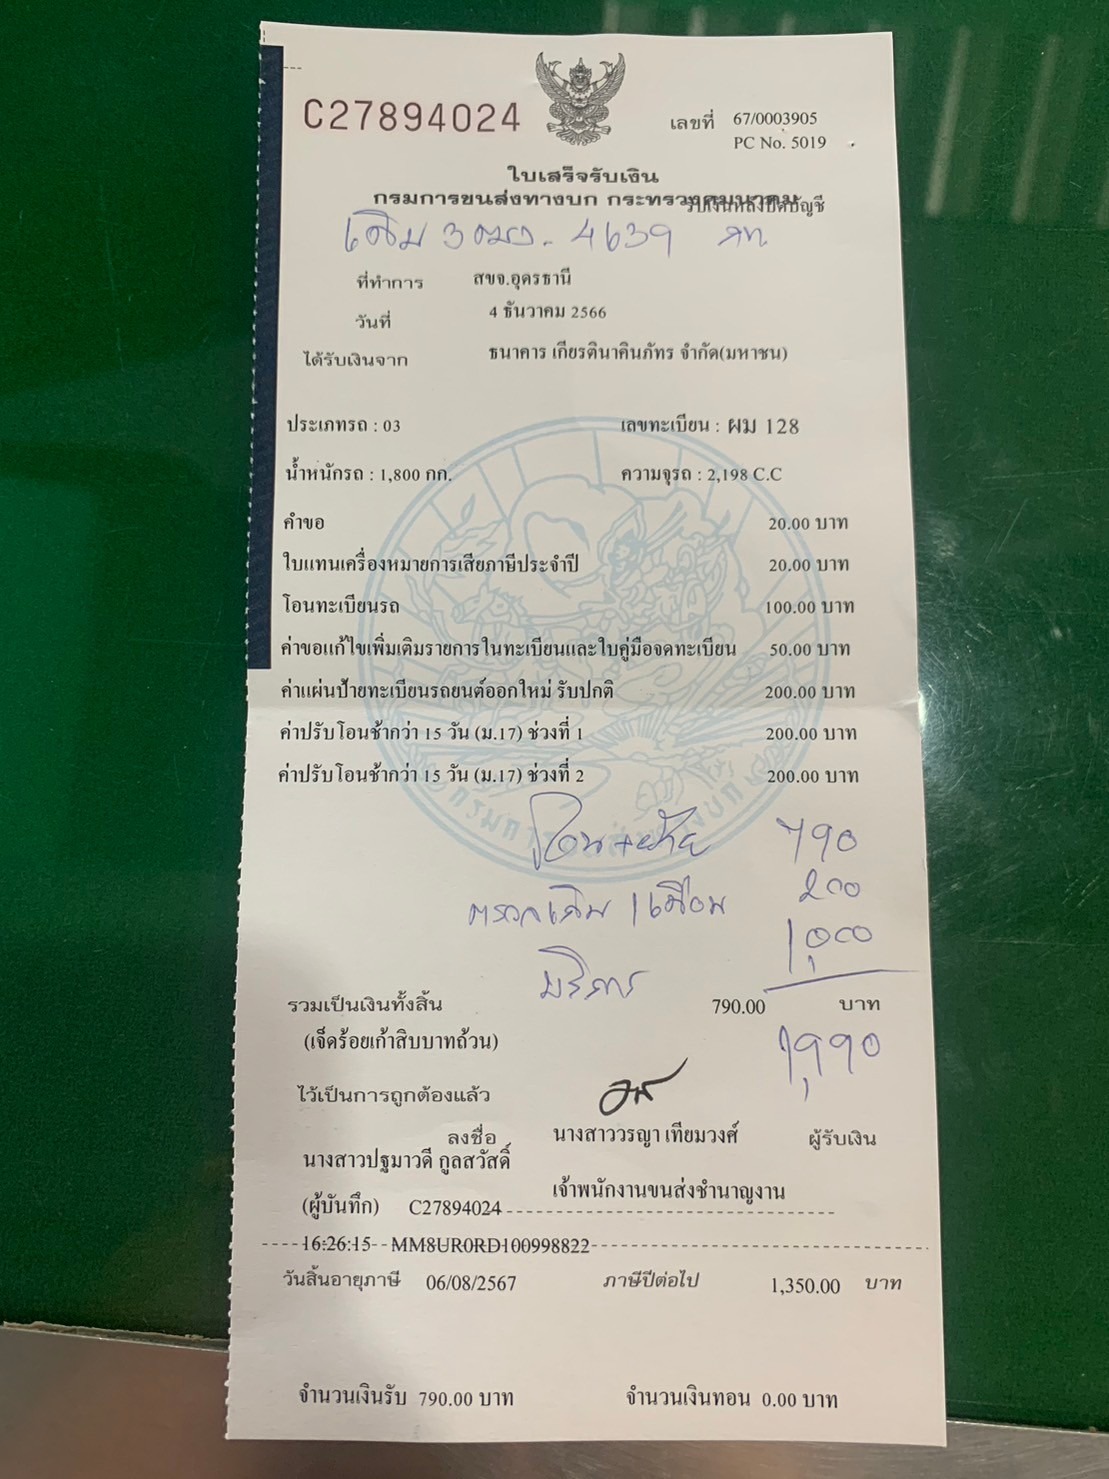 C27894024
เลขที่ 67/0003905
PC No. 5019
ใบเสร็จรับเงิน
กรมการขนส่งทางบก กระทรวงคมนาคม
รับเงินหลังปิดบัญชี
เดิม 3ฒง - 4639 กท
ที่ทำการ สขจ.อุดรธานี
วันที่ 4 ธันวาคม 2566
ได้รับเงินจาก ธนาคาร เกียรตินาคินภัทร จำกัด(มหาชน)
ประเภทรถ : 03 เลขทะเบียน : ผม 128
น้ำหนักรถ : 1,800 กก. ความจุรถ : 2,198 C.C
คำขอ 20.00 บาท
ใบแทนเครื่องหมายการเสียภาษีประจำปี 20.00 บาท
โอนทะเบียนรถ 100.00 บาท
ค่าขอแก้ไขเพิ่มเติมรายการในทะเบียนและใบคู่มือจดทะเบียน 50.00 บาท
ค่าแผ่นป้ายทะเบียนรถยนต์ออกใหม่ รับปกติ 200.00 บาท
ค่าปรับโอนช้ากว่า 15 วัน (ม.17) ช่วงที่ 1 200.00 บาท
ค่าปรับโอนช้ากว่า 15 วัน (ม.17) ช่วงที่ 2 200.00 บาท
โอน+ย้าย 790
ตรวจเดิม 1 เดือน 200
บริการ 1,000
รวมเป็นเงินทั้งสิ้น 790.00 บาท
(เจ็ดร้อยเก้าสิบบาทถ้วน) 1,990
ไว้เป็นการถูกต้องแล้ว
ลงชื่อ นางสาววรญา เทียมวงศ์ ผู้รับเงิน
นางสาวปฐมาวดี กูลสวัสดิ์
เจ้าพนักงานขนส่งชำนาญงาน
(ผู้บันทึก) C27894024
16:26:15 MM8UR0RD100998822
วันสิ้นอายุภาษี 06/08/2567 ภาษีปีต่อไป 1,350.00 บาท
จำนวนเงินรับ 790.00 บาท จำนวนเงินทอน 0.00 บาท